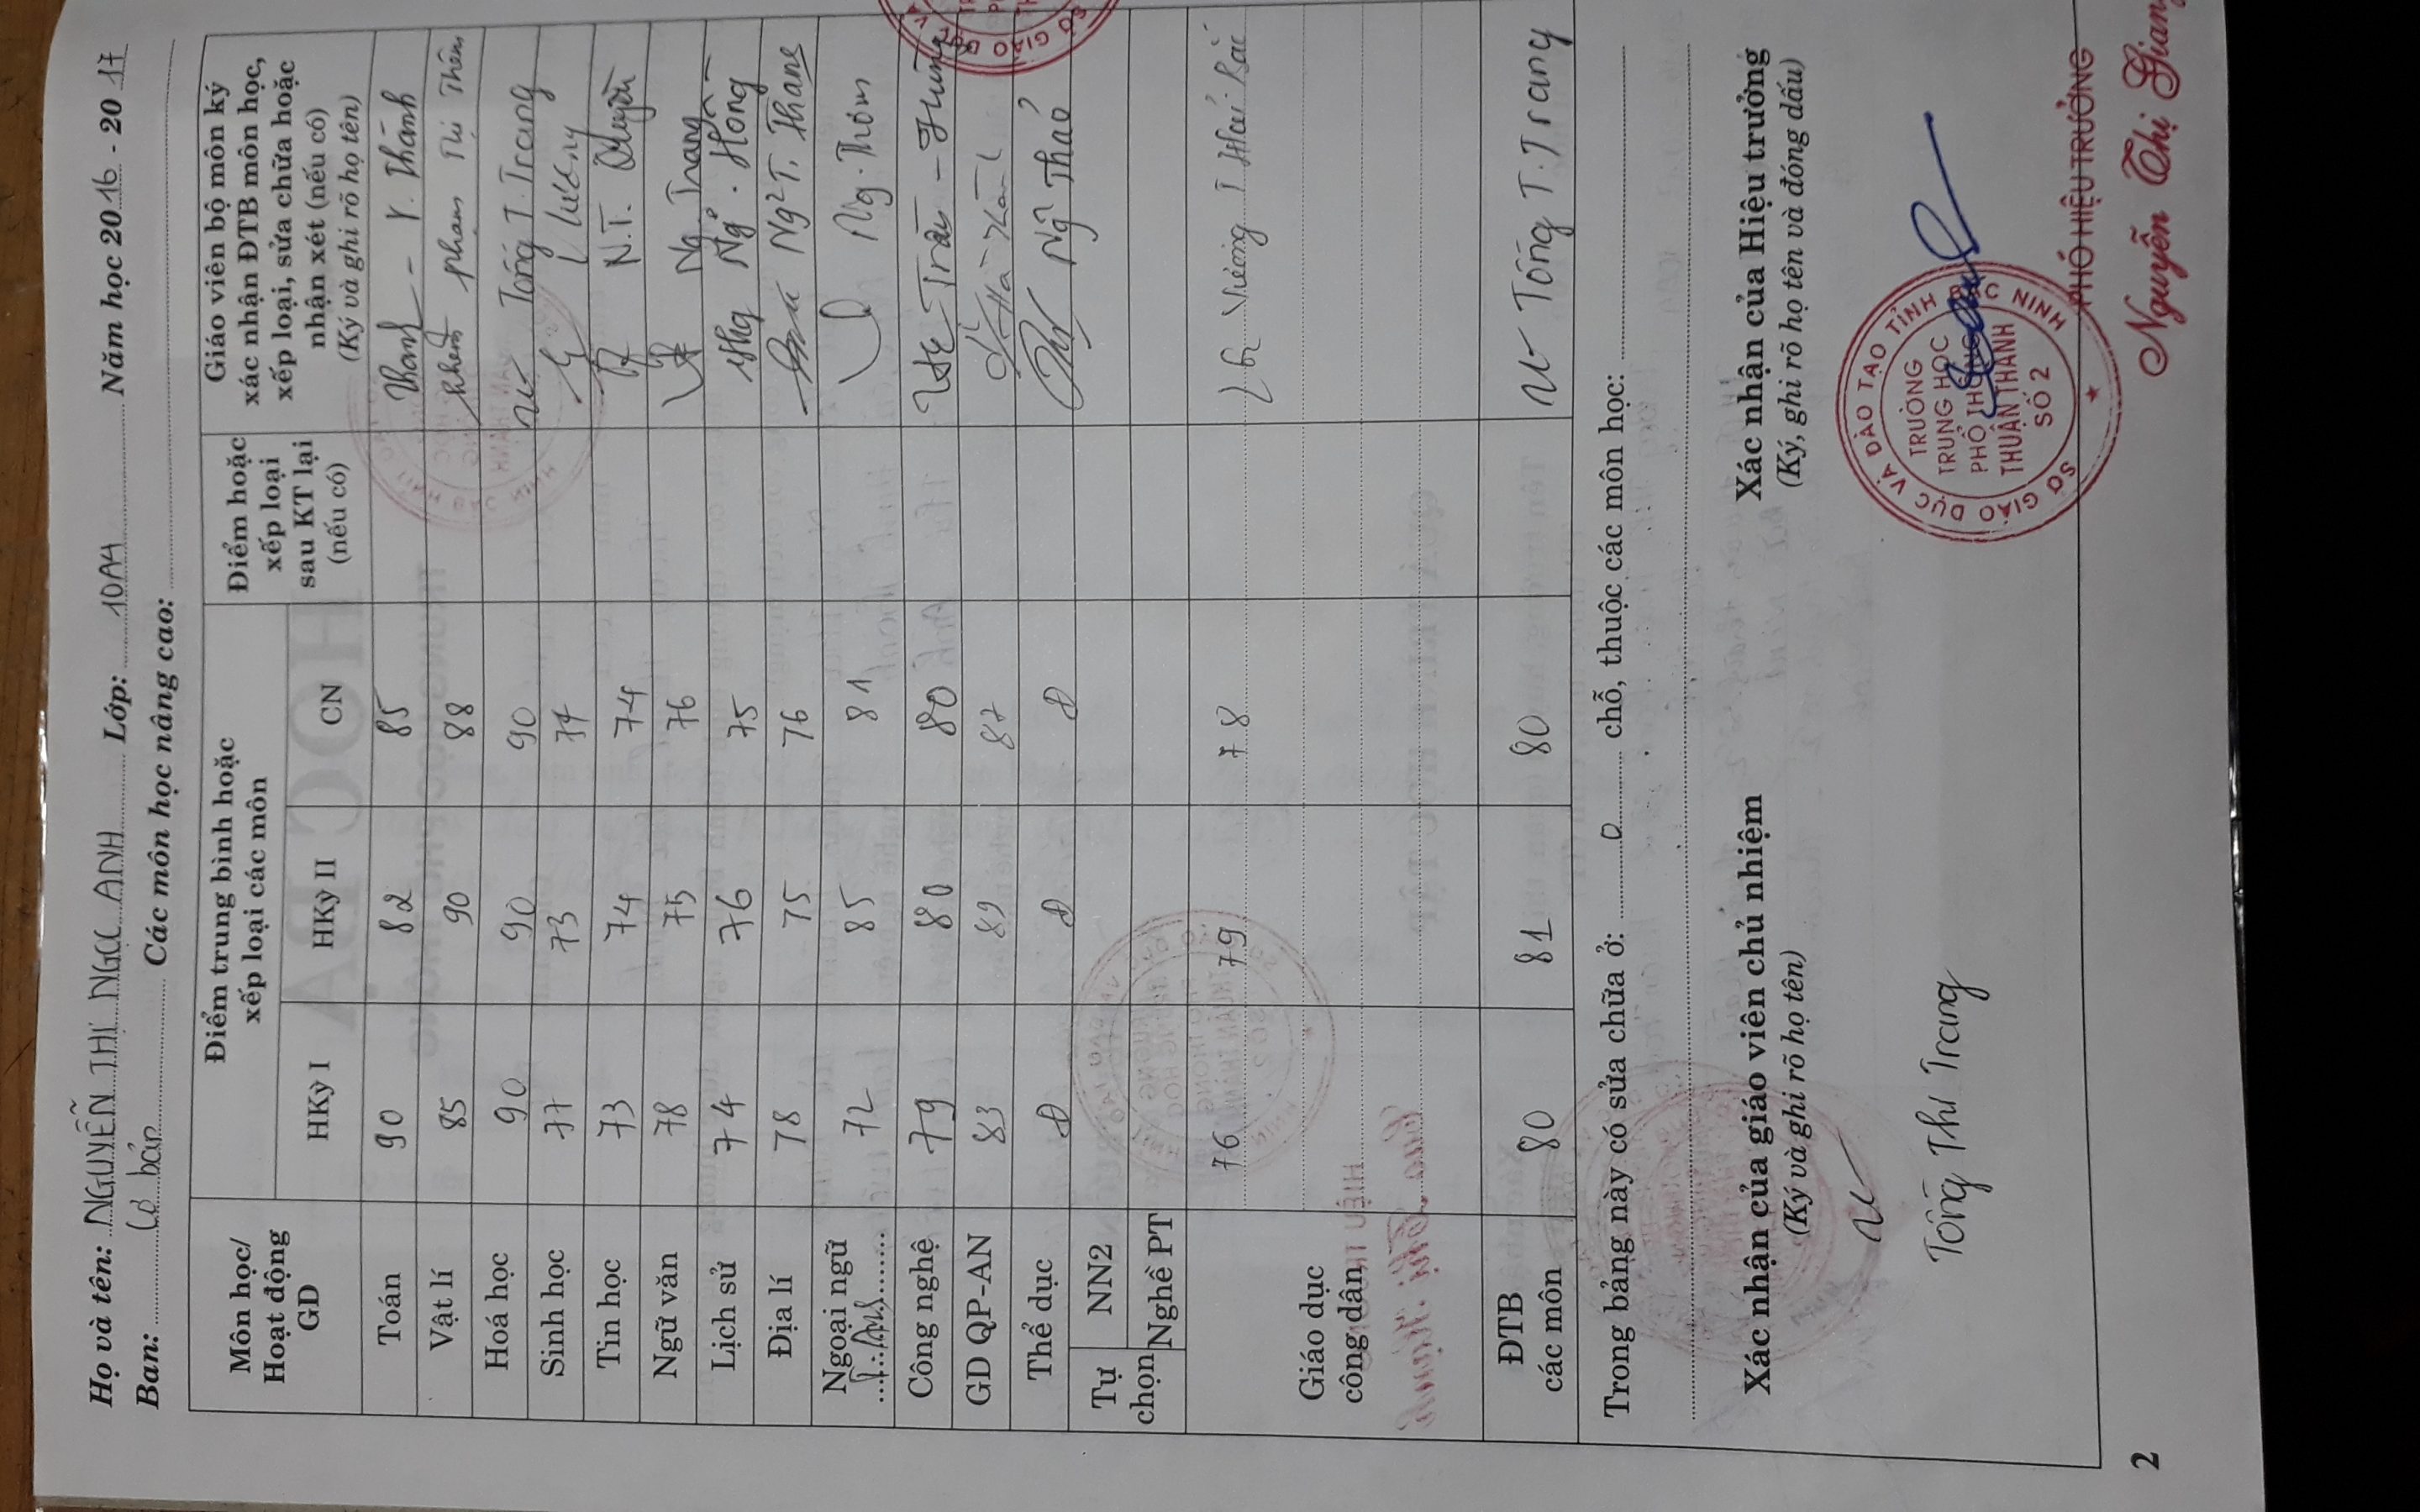 Họ và tên: NGUYỄN THỊ NGỌC ANH Lớp: 10A4 Năm học 2016 - 2017
Ban: Cơ bản Các môn học nâng cao:
Môn học/ Hoạt động GD
Điểm trung bình hoặc xếp loại các môn
Điểm hoặc xếp loại sau KT lại (nếu có)
Giáo viên bộ môn ký xác nhận ĐTB môn học, xếp loại, sửa chữa hoặc nhận xét (nếu có)
(Ký và ghi rõ họ tên)
HKỳ I HKỳ II CN
Toán 90 82 85 V. Thành
Vật lí 85 90 88 Phạm Thị Thêm
Hoá học 90 90 90 Tống T. Trang
Sinh học 77 73 74
Tin học 73 74 74 N.T.
Ngữ văn 78 75 76 Ng. Trang
Lịch sử 74 76 75 Hồng
Địa lí 78 75 76
Ngoại ngữ T. Anh 72 85 81 Ng. Thơm
Công nghệ 79 80 80
GD QP-AN 83 89 87
Thể dục Đ Đ Đ Thảo
Tự chọn NN2
Nghề PT
Giáo dục công dân 76 79 78
ĐTB các môn 80 81 80 Tống T. Trang
Trong bảng này có sửa chữa ở: 0 chỗ, thuộc các môn học:
Xác nhận của giáo viên chủ nhiệm
(Ký và ghi rõ họ tên)
Tống Thị Trang
Xác nhận của Hiệu trưởng
(Ký, ghi rõ họ tên và đóng dấu)
SỞ GIÁO DỤC VÀ ĐÀO TẠO TỈNH BẮC NINH
TRƯỜNG
TRUNG HỌC
PHỔ THÔNG
THUẬN THÀNH
SỐ 2
PHÓ HIỆU TRƯỞNG
Nguyễn Thị Giang
2